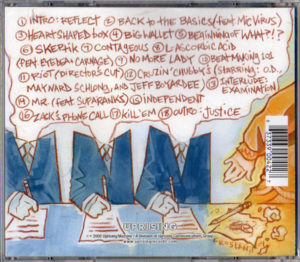 ① INTRO: REFLECT ② BACK TO THE BASICS (feat MIC VIRUS)
③ HEART SHAPED BOX ④ BIG WALLET ⑤ BEGINNING OF WHAT?!?
⑥ SKEPTIK ⑦ CONTAGEOUS ⑧ L. ASCORBIC ACID
(FEAT EYEBEM CARNAGE) ⑨ NO MORE LADY ⑩ BEAT MAKING 101
⑪ RIOT (DIRECTOR'S CUT) ⑫ CRUZIN' CHUBBY'S (STARRING: O.D.,
MAYNARD SCHLONG, AND JEFF BOYARDEE) ⑬ INTERLUDE:
EXAMINATION
⑭ MR. (FEAT SUPAFRANKS) ⑮ INDEPENDENT
⑯ ZACK'S PHONE CALL ⑰ KILL 'EM ⑱ OUTRO: JUSTICE
UPRISING